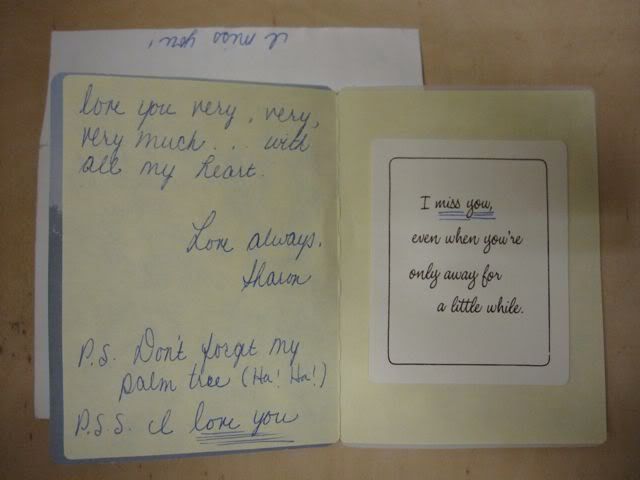 I miss you!
love you very, very,
very much... with
all my heart.
Love always,
Sharon
P.S. Don't forget my
palm tree (Ha! Ha!)
P.S.S. I love you
I miss you,
even when you're
only away for
a little while.